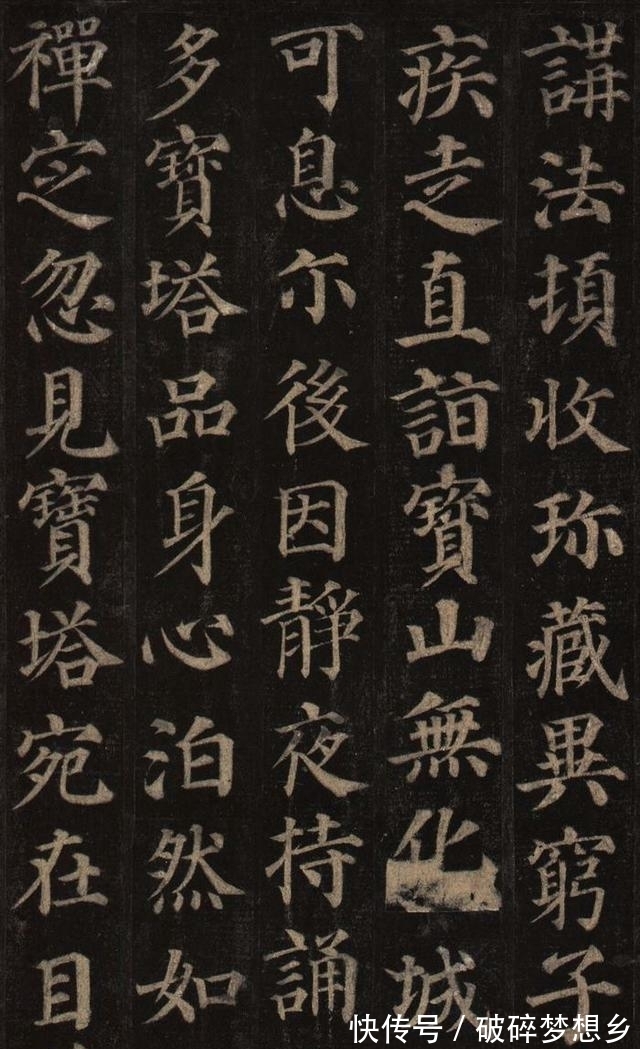 講法頓收珎藏異窮子
疾走直詣寳山無化城
可息尒後因靜夜持誦
多寳塔品身心泊然如
禪定忽見寳塔宛在目
快传号/破碎梦想乡